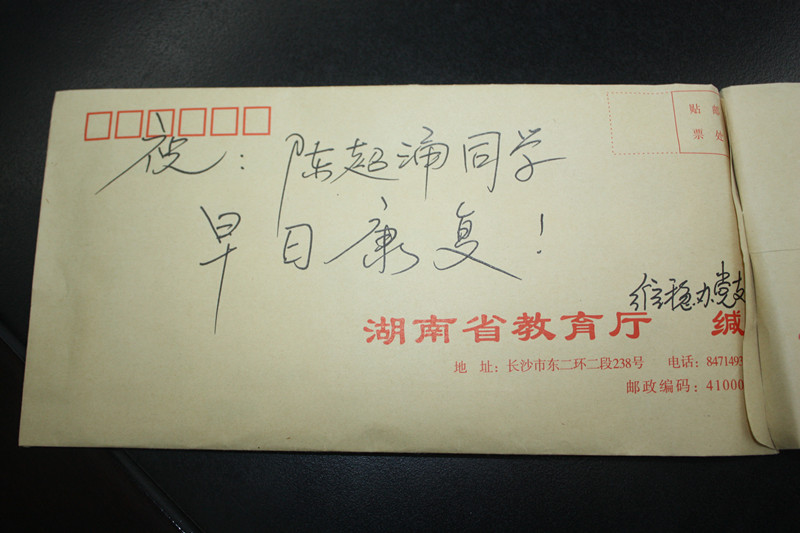 贴 邮
票 处
祝：陈超涌同学
早日康复！
维稳办党支
湖南省教育厅 缄
地 址：长沙市东二环二段238号 电话：8471493
邮政编码：41000